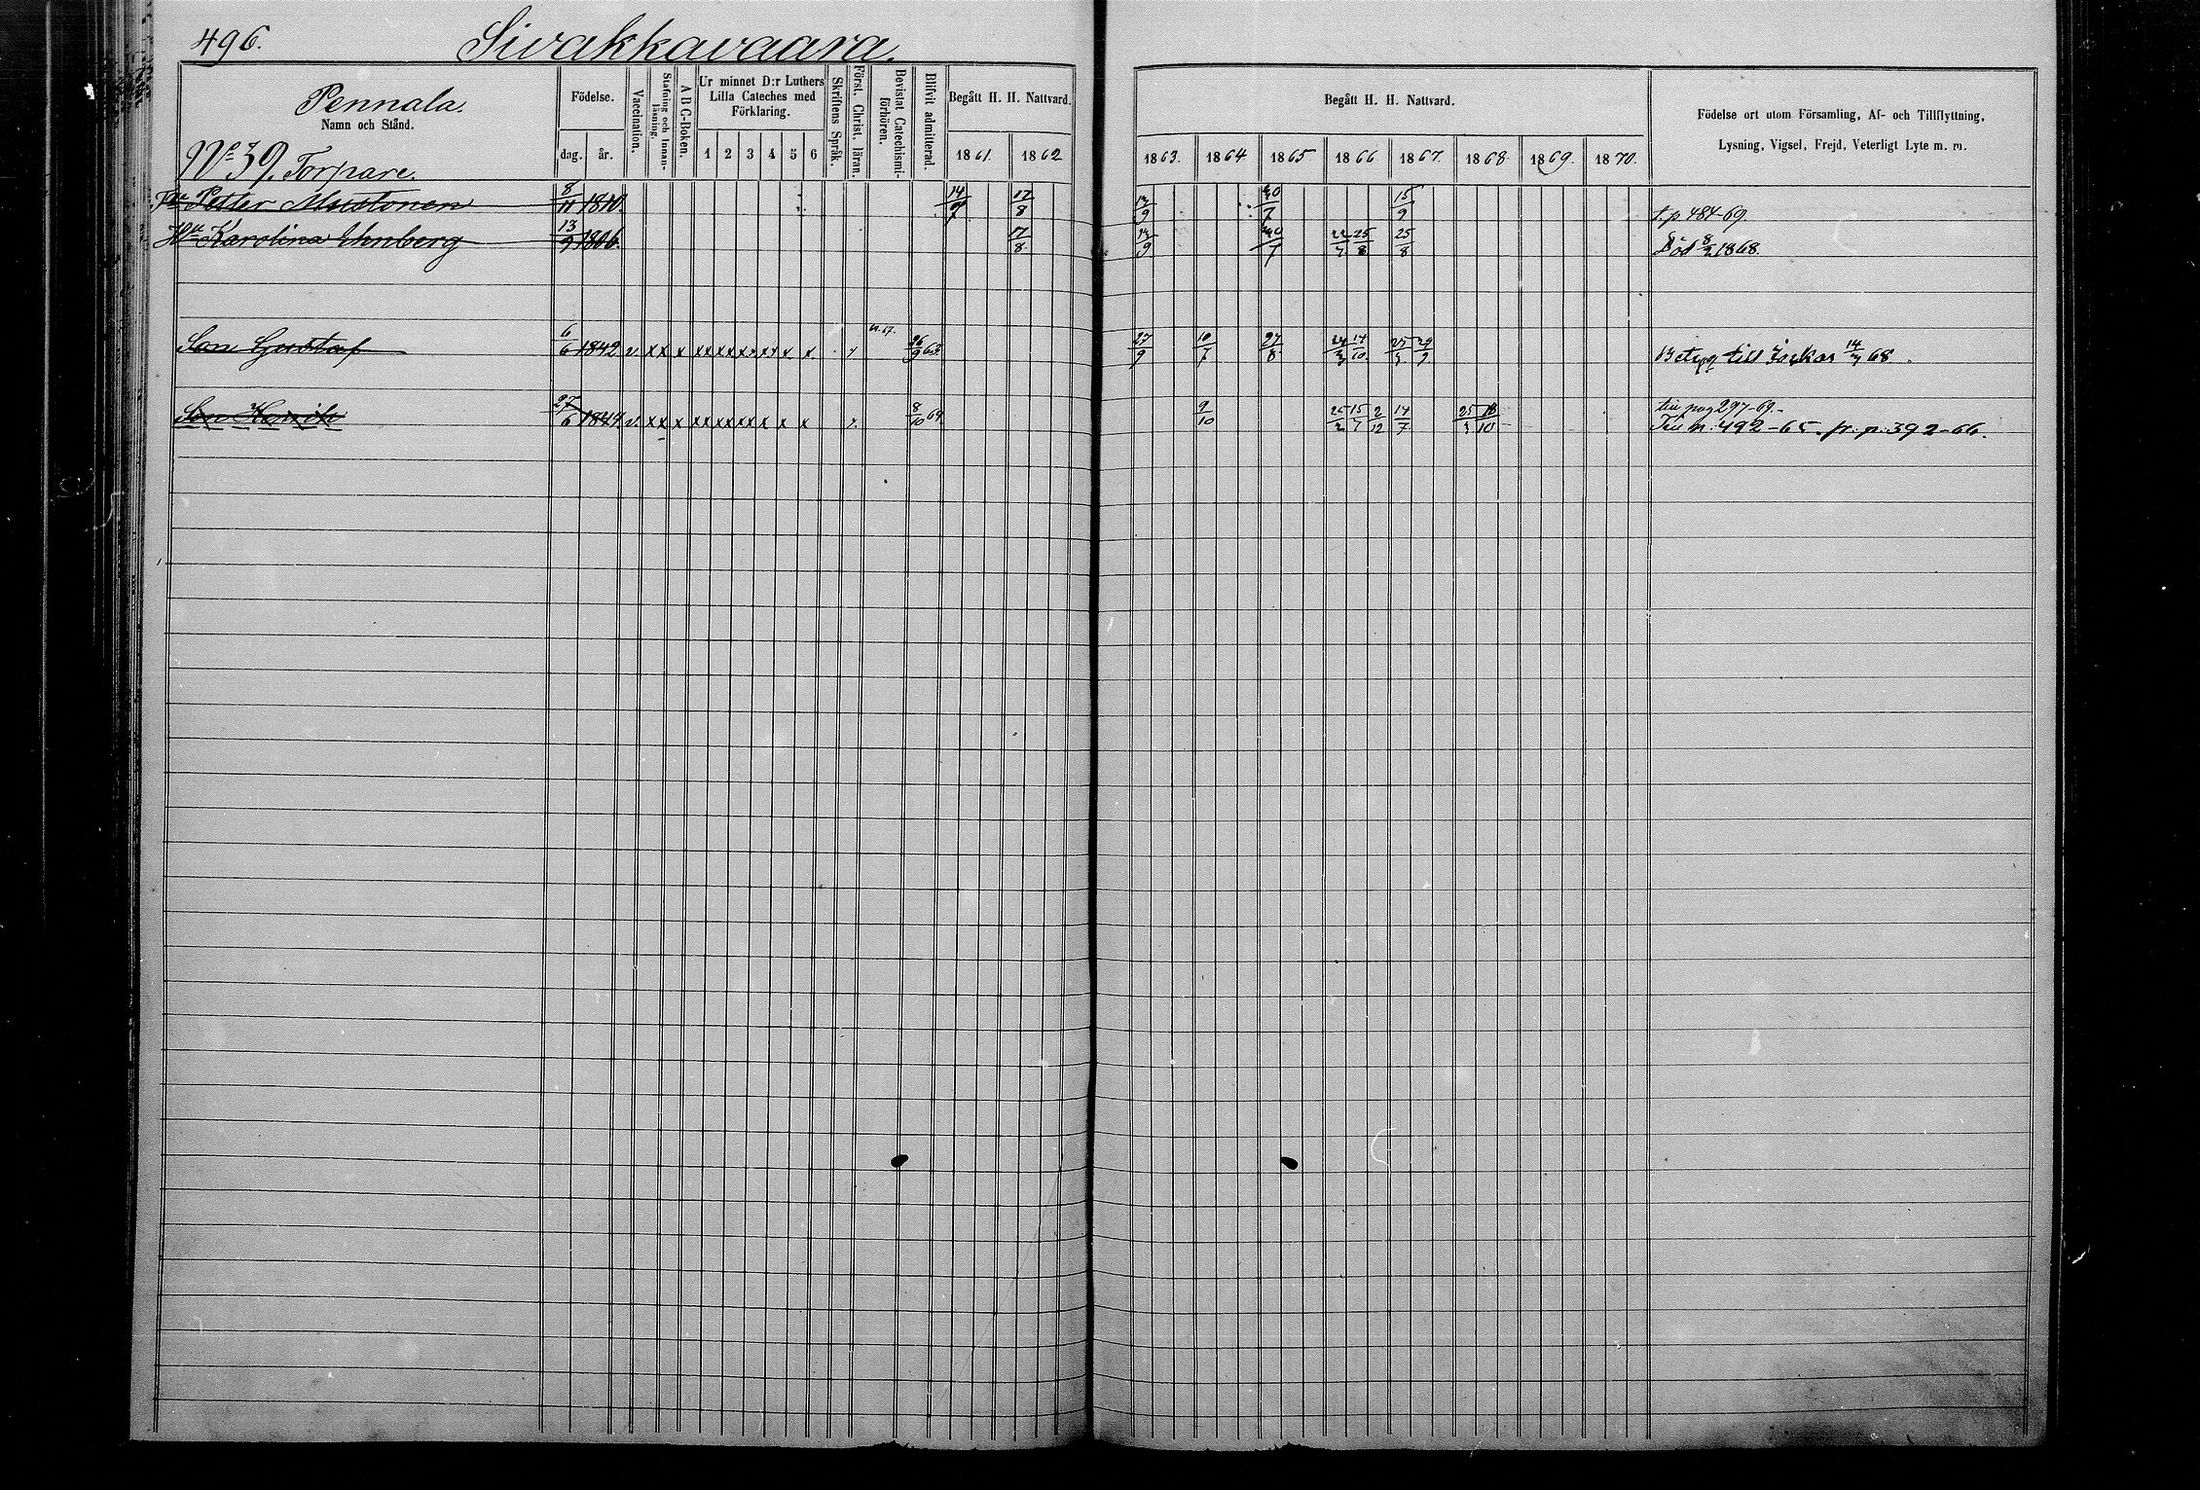 496.
Sivakkavaara.
Pennala.
Namn och Stånd.
Födelse.
dag.
år.
Vaccination.
Stafning och Innanläsning.
A B C-Boken.
Ur minnet D:r Luthers
Lilla Cateches med
Förklaring.
1 2 3 4 5 6
Skriftens Språk.
Först. Christ. läran.
Bevistat Catechismiförhören.
Blifvit admitterad.
Begått H. H. Nattvard.
1861.
1862
Begått H. H. Nattvard.
1863. 1864 1865 1866 1867. 1868. 1869. 1870.
Födelse ort utom Församling, Af- och Tillflyttning,
Lysning, Vigsel, Frejd, Veterligt Lyte m. m.
No 39. Torpare.
Petter Mustonen 8/11 1810. 14/7 17/8 13/9 20/7 15/9 t. p 484-69.
Hu Karolina Ehnberg 13/9 1806. 17/8 13/9 20/7 25/8 25/8 Död 8/2 1868.
Son Gustaf 6/6 1842 v. xx x xx xx xx xx x x 26/9 63. 27/9 10/7 27/8 14/10 Betyg till 14/7 68.
till pag 297-69.
Son Henrik 27/6 1849 v. xx x xx xx xx x x x 8/10 64. 9/10 15/7 2/12 14/7 18/10 492-65. fr. p. 392-66.